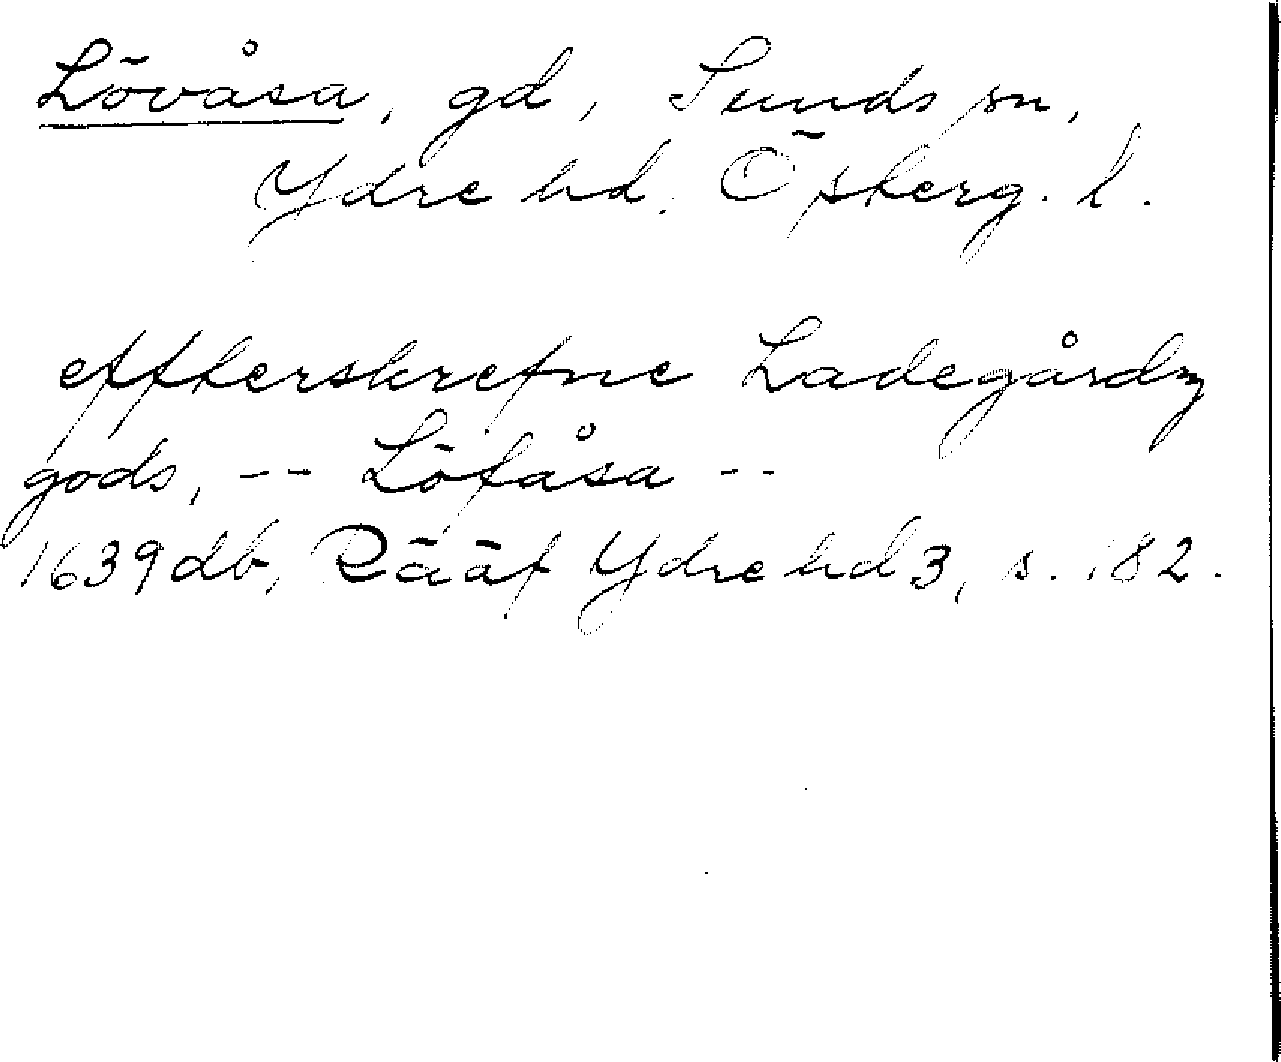 Lövåsa, gd, Sunds sn,
Ydre hd. Östberg. l.
effterskrefne Ladegårdz
gods, -- Löfåsa --
1639 db, Rääf Ydre hd 3, s. 182.